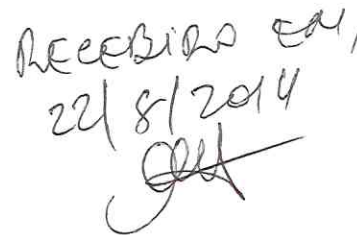 RECEBIDO EM,
22/8/2014